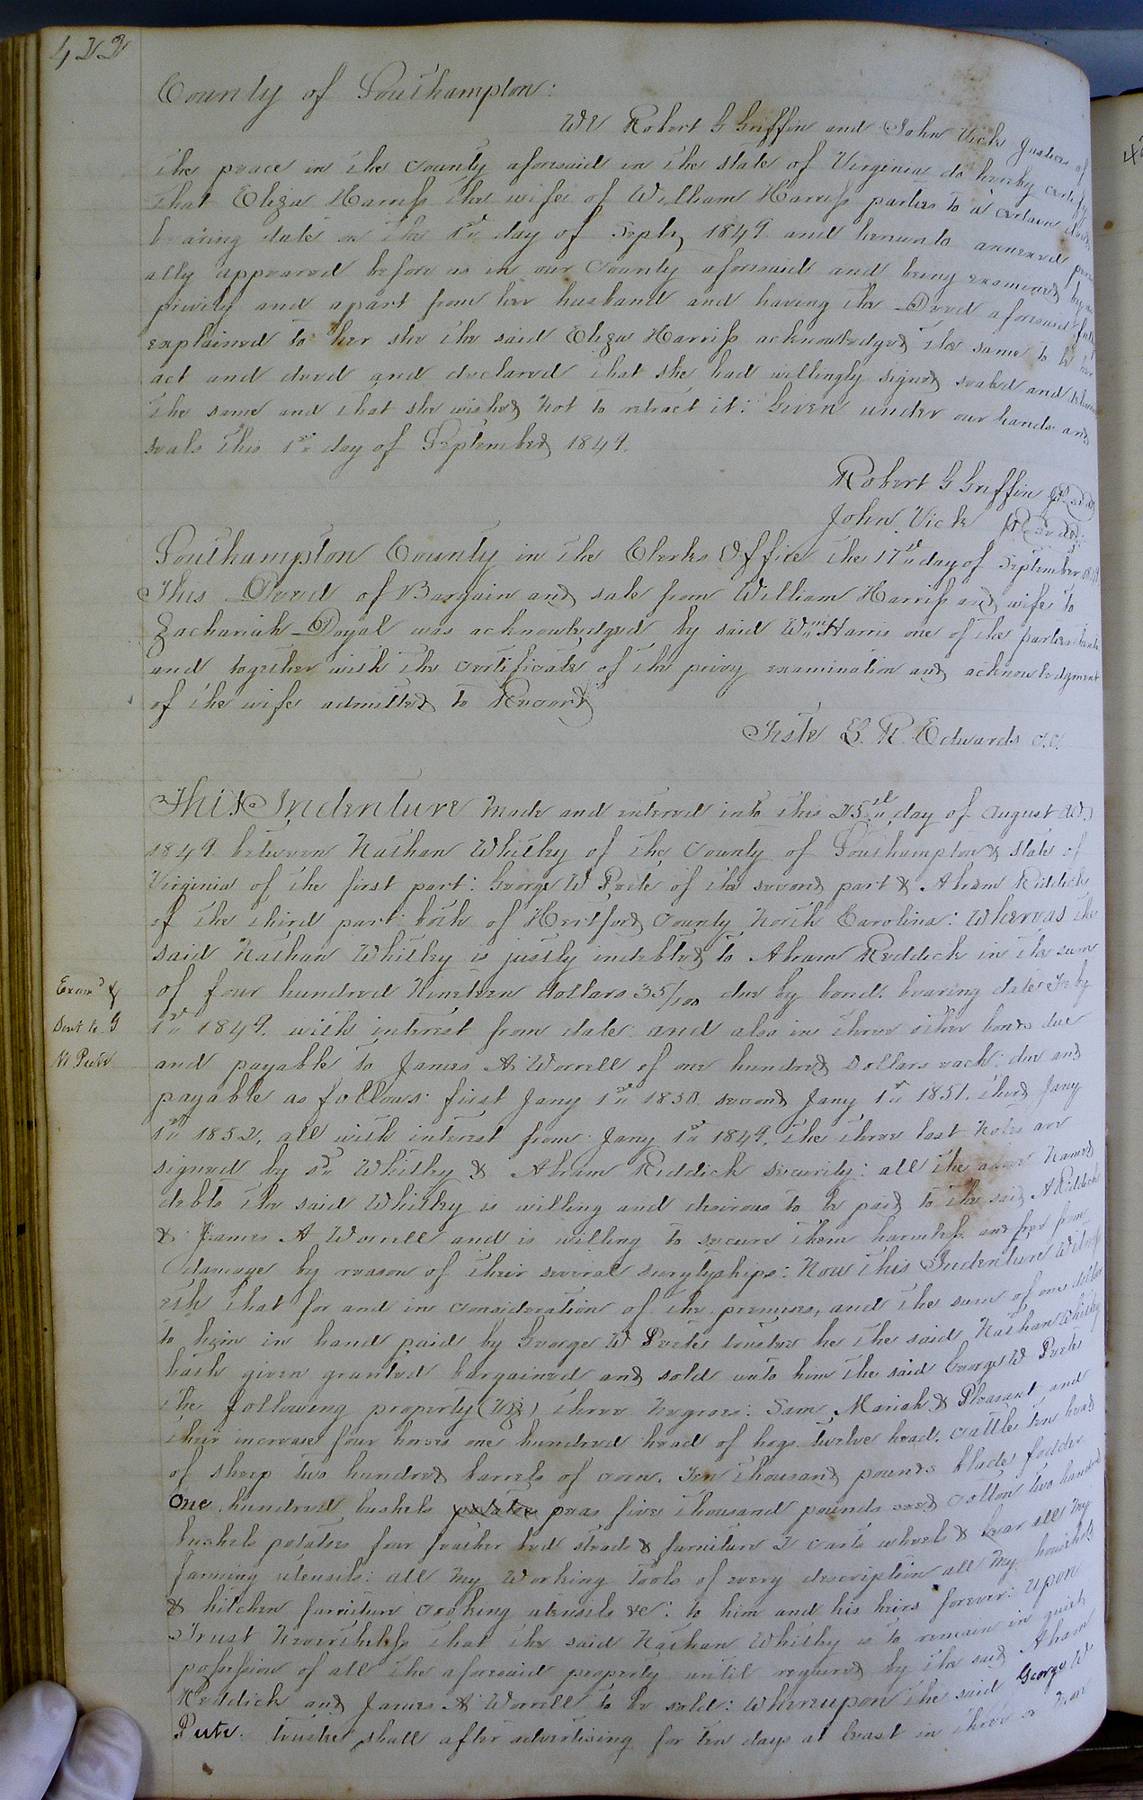 422
County of Southampton:
We Robert G Griffin and John Vick Justices of
the peace in the County aforesaid in the state of Virginia do hereby certify
that Eliza Harriss the wife of William Harriss parties to a certain deed
bearing date on the 1st day of Septr, 1849 and hereunto annexed person
ally appeared before us in our County aforesaid and being examined by us
privily and apart from her husband and having the Deed aforesaid fully
explained to her she the said Eliza Harriss acknowledged the same to be her
act and deed and declared that she had willingly signed sealed and delivered
the same and that she wished not to retract it: Given under our hands and
seals this 1st day of September 1849.
Robert G Griffin
John Vick
Southampton County in the Clerks Office the 17th day of September 1849
This Deed of Bargain and sale from William Harriss and wife to
Zachariah Doyal was acknowledged by said Wm Harris one of the parties thereto
and together with the certificate of the privy examination and acknowledgment
of the wife admitted to Record
Teste L. R. Edwards c.c.
This Indenture Made and entered into this 25th day of August AD.
1849 between Nathan Whitley of the County of Southampton & State of
Virginia of the first part: George W Peete of the second part & Abram Riddick
of the third part both of Hertford County North Carolina: Whereas the
said Nathan Whitley is justly indebted to Abram Reddick in the sum
of four hundred Nineteen dollars 35/100 due by bond. bearing date Feby
1st 1849. with interest from date and also in three other bonds due
and payable to James A Worrell of one hundred Dollars each: due and
payable as follows: first Jany 1st 1850. second Jany 1st 1851. third Jany
1st 1852, all with interest from Jany 1st 1849. the three last Notes are
signed by sd Whitley & Abram Riddick security: all the above Named
debts the said Whitley is willing and desirous to be paid to the said A Riddick
& James A Worrell and is willing to secure them harmless and free from
damage by reason of their several suretyships: Now This Indenture Witness
eth that for and in consideration of the premises, and the sum of one dollar
to him in hand paid by George W Peete trustee he the said Nathan Whitley
hath given granted bargained and sold unto him the said George W Peete
the following property (Viz) three Negroes: Sam, Mariah & Pleasant and
their increase four horses one hundred head of hogs. twelve head. cattle ten head
of sheep two hundred barrels of corn. Ten thousand pounds blade fodder
One hundred bushels potatoes peas five thousand pounds seed cotton two hundred
bushels potatoes four feather bed steads & furniture 2 carts wheels & Gear all my
farming utensils: all my Working tools of every description all my household
& kitchen furniture cooking utensils &c: to him and his heirs forever: upon
Trust Nevertheless that the said Nathan Whitley is to remain in quiet
possession of all the aforesaid property until required by the said Abram
Reddick and James A Worrell to be sold: whereupon the said George W
Peete trustee shall after advertising for ten days at least in three or more
Examd &
Sent to G
W Peete